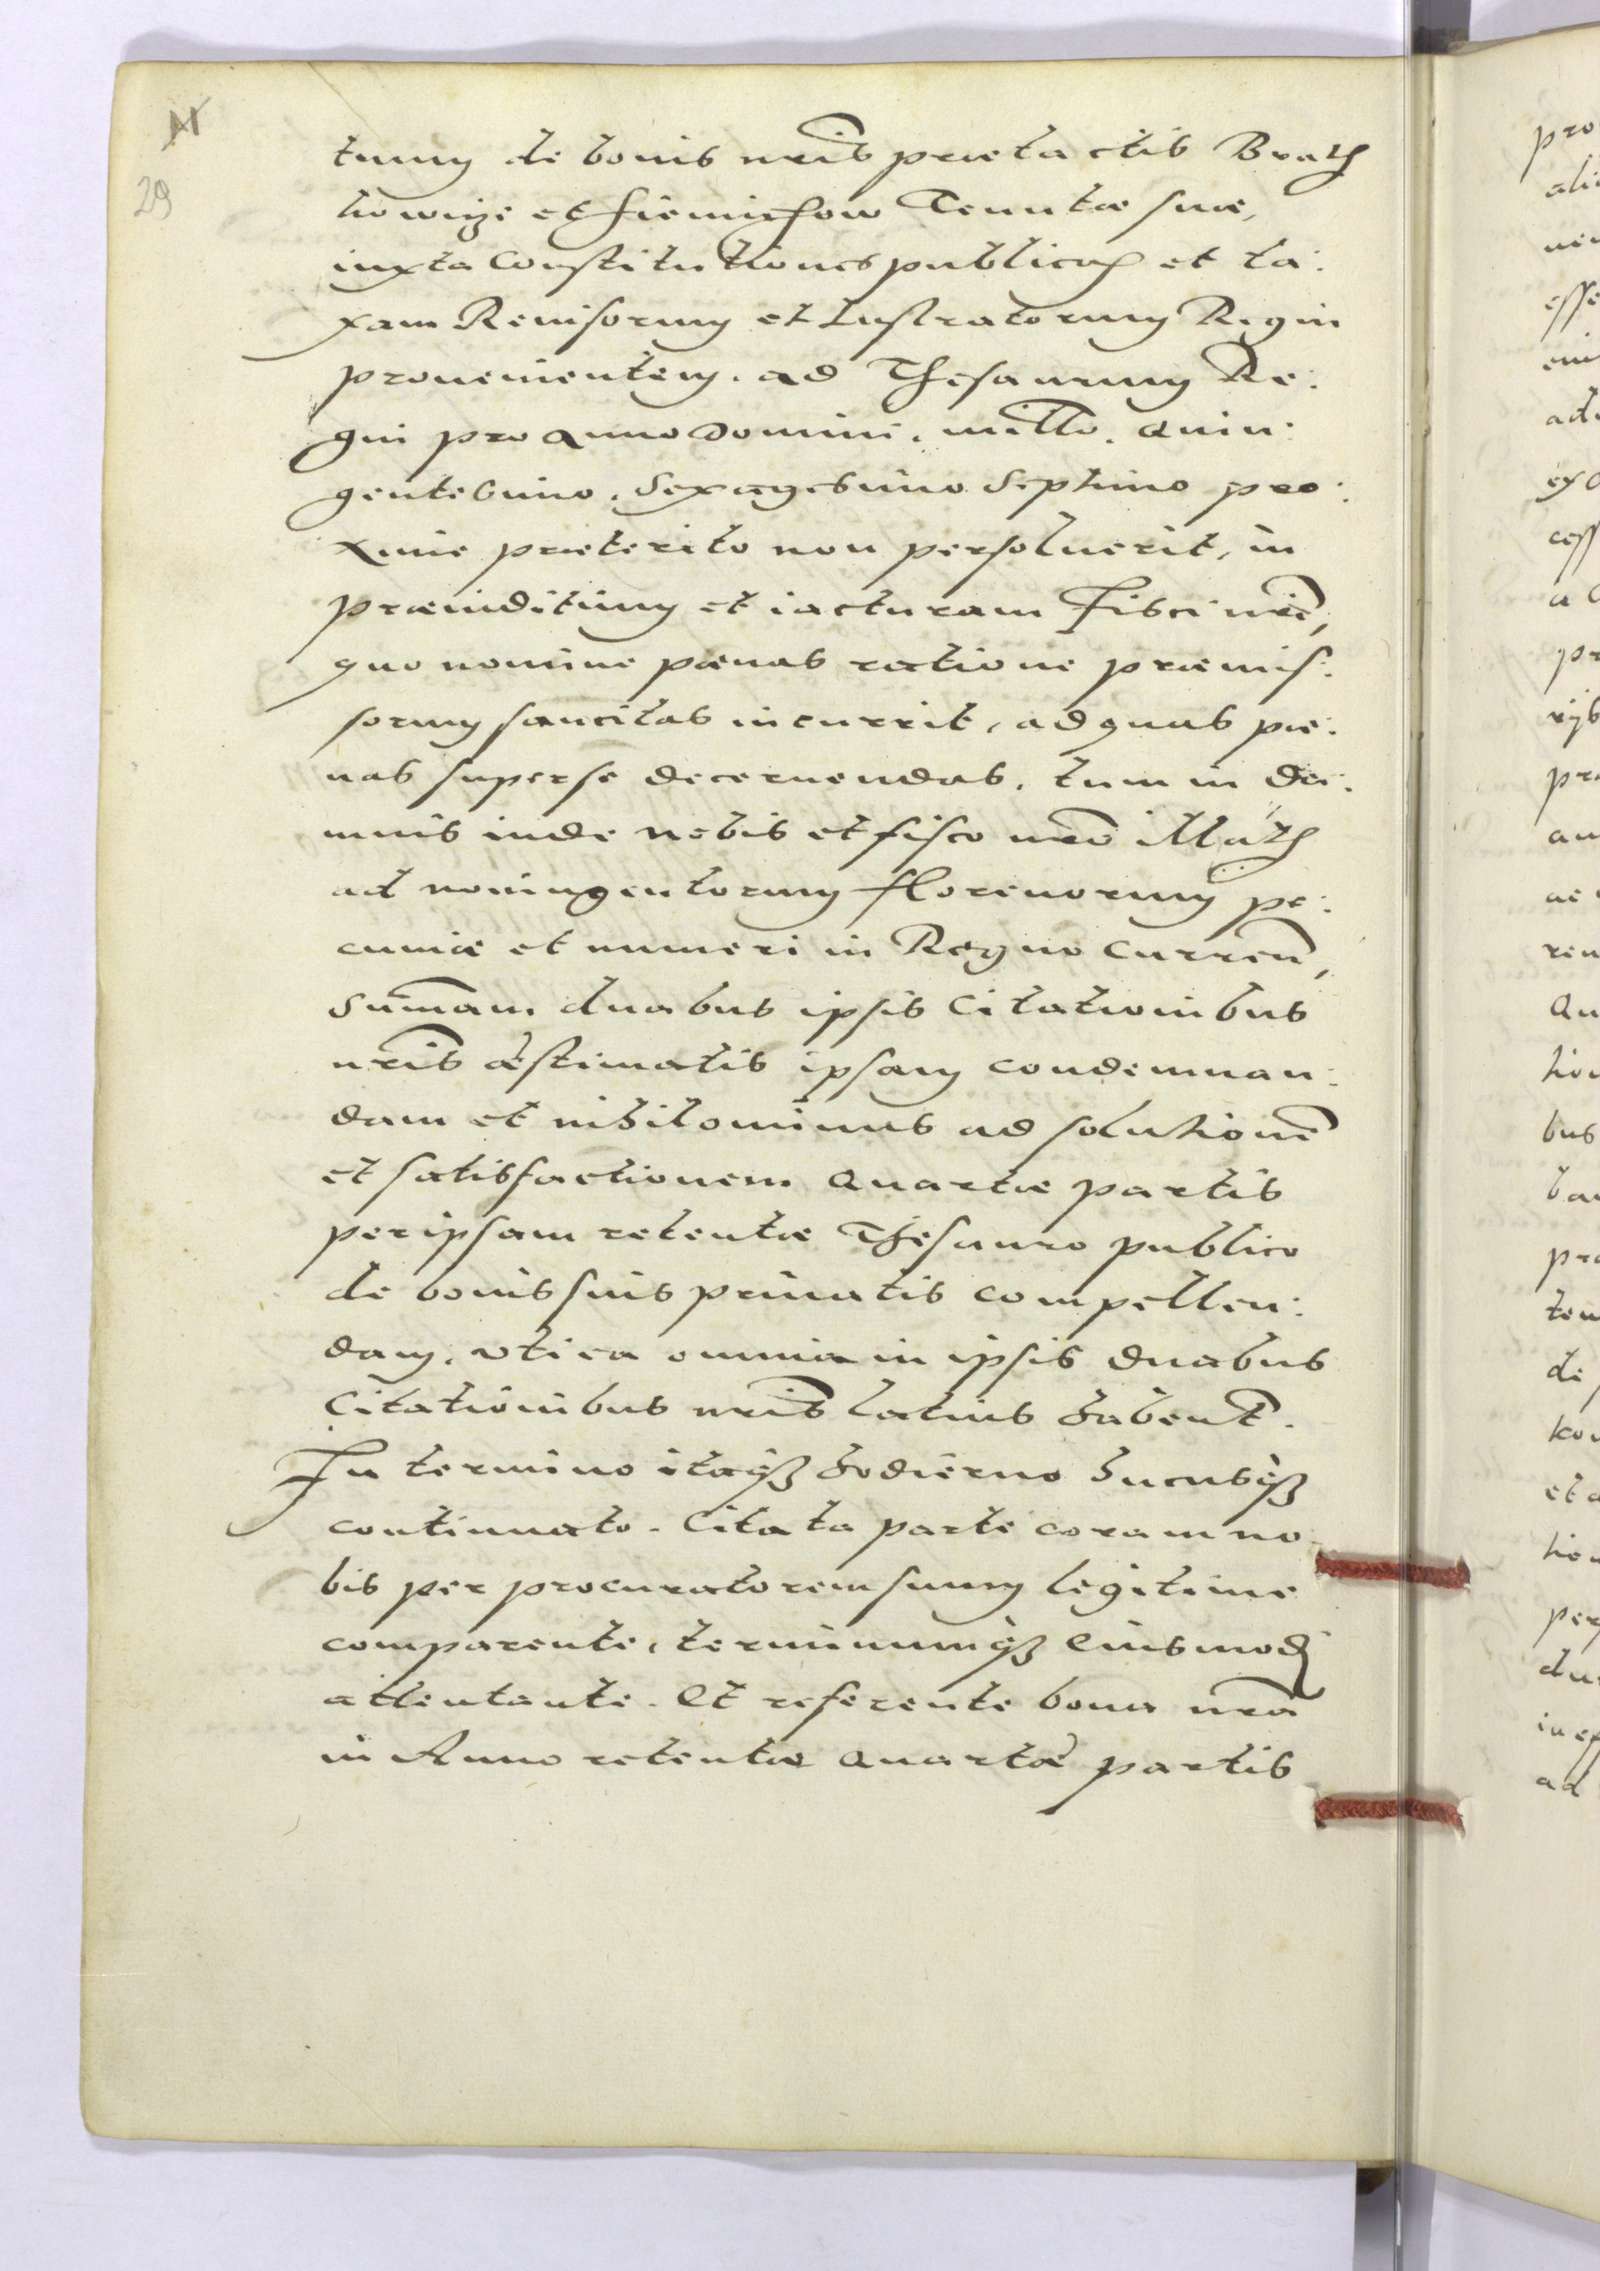 29
tum de bonis nris praetactis Brath
kowize et Siemichow Tenutae suae,
iuxta Constitutiones publicas et ta:
xam Reuisorum et Lustratorum Regni
prouenientem. ad Thesaurum Re:
gni pro Anno Domini. millo. Quin:
gentesimo. Sexagesimo Septimo pro:
xime praeterito non persoluerit, in
praeiuditium et iacturam Fisci nri,
quo nomine paenas ratione praemis:
sorum sancitas incurrit, ad quas pae:
nas super se decernendas. tum in da:
mnis inde nobis et fisco nro illatis
ad noningentorum florenorum pe:
cuniae et numeri in Regno Curren,
Sumam duabus ipsis Citationibus
nris aestimatis ipsam condemnan:
dam et nihilominus ad solutione
et satisfactionem Quartae partis
per ipsam retentae Thesauro publico
de bonis suis priuatis compellen:
dam. vti ea omnia in ipsis duabus
Citationibus nris latius habent.
In termino itaq hodierno hucusq
continuato. Citata parte coram no
bis per procuratorem suum legitime
comparente, terminumq Eiusmodi
attentante. Et referente bona nra
in Anno retentae Quartae partis
pro
esse
a
bus
de
et a
per
ad